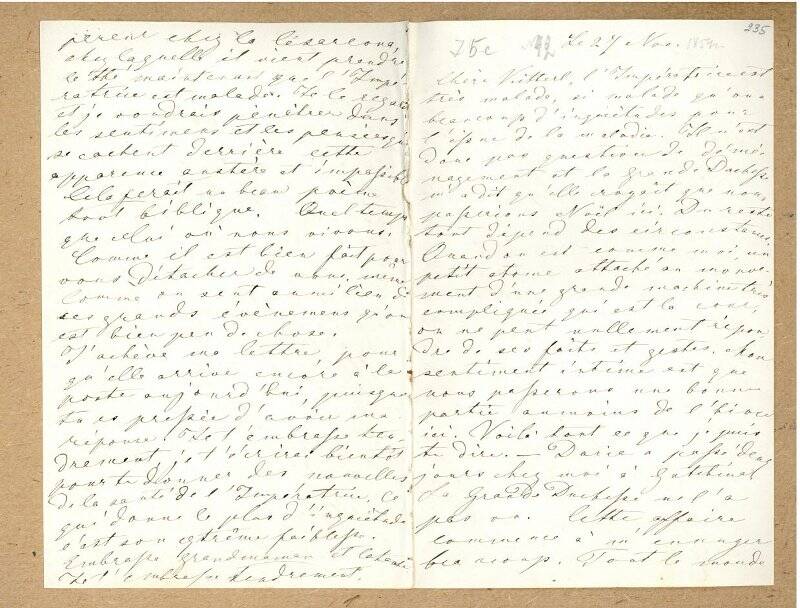 235
75c
Le 27 Nov. 1854
Chère Kitterl, l'Impératrice est
très malade, si malade qu'on a
beaucoup d'inquiétudes pour
l'issue de la maladie. Il n'est
donc pas question de démé-
nagement et la Grande Duchesse
m'a dit qu'elle croyait que nous
passerions Noël ici. Du reste
tout dépend des circonstances.
Quand on est comme moi un
petit atome attaché au mouve-
ment d'une grande machine très
compliquée qui est la cour,
on ne peut nullement répon-
dre de ses faits et gestes. Mon
sentiment intime est que
nous passerons une bonne
partie au moins de l'hiver
ici. Voilà tout ce que je puis
te dire. — Daria a passé deux
jours chez moi à Gatchina
La Grande Duchesse ne l'a
pas vu. Cette affaire
commence à m'ennuyer
beaucoup. Tout le monde
chez la Césarevna,
chez laquelle il vient prendre
le thé maintenant que l'Impé-
ratrice est malade. Je le regarde
et je voudrais pénétrer dans
les sentimens et les pensées qui
se cachent derrière cette
apparence austère et impassible
Cela ferait un beau poème
tout biblique. Quel temps
que celui où nous vivons.
Comme il est bien fait pour
vous détacher de vous même
Comme on sent au milieu de
ces grands évènemens qu'on
est bien peu de chose.
J'achève ma lettre, pour
qu'elle arrive encore à la
poste aujourd'hui, puisque
tu es pressée d'avoir ma
réponse. Je t'embrasse ten-
drement, je t'écrirai bientôt
pour te donner des nouvelles
de la santé de l'Impératrice. Ce
qui donne le plus d'inquiétude
c'est son extrême faiblesse.
Embrasse grandmaman et
Je t'embrasse tendrement.